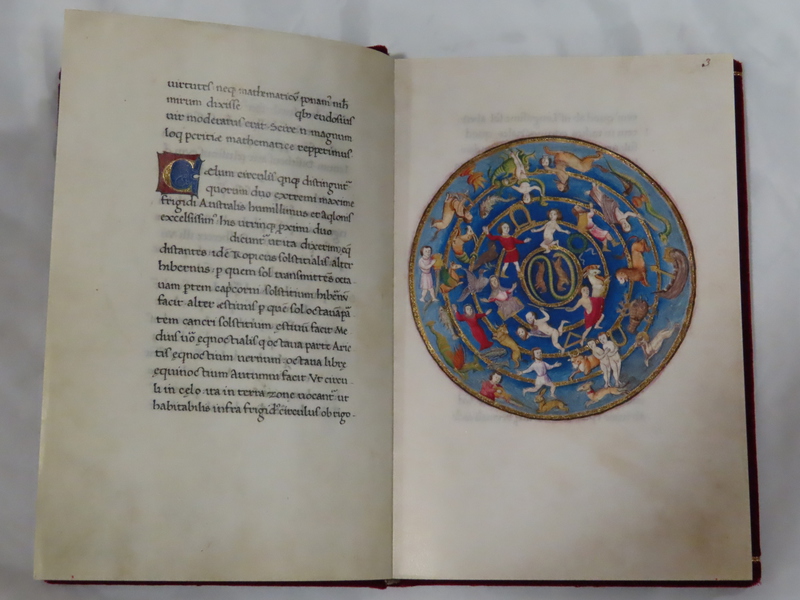 uirtutes neq; mathematicũ ponam nih
mirum dixisse qb eudosius
uir moderatus erat. Scire n magnum
loq peritiæ mathematice repperimus
Cælum circulis qnq; distinguit
quorum duo extremi maxime
frigidi Australis humillimus et aqlonis
excelsissim his utrinq; pximi duo
dicunt ut ita dixerim, eq
distantes idẽ Tropicus solstitialis alter
hibernus p quem sol transmittẽs octa
uam ptem capcorni solstitium hibernũ
facit alter estiuus p quẽ sol octauã pa
tem cancri solstitium estiuũ facit Me
dius uõ eqnoctialis q octaua parte Arie
tis eqnoctium uernum octaua librę
equinoctium Autumni facit Vt circu
li in celo ita in terra zone uocant ut
habitabilis infra frigid circulus ob rigo-
3